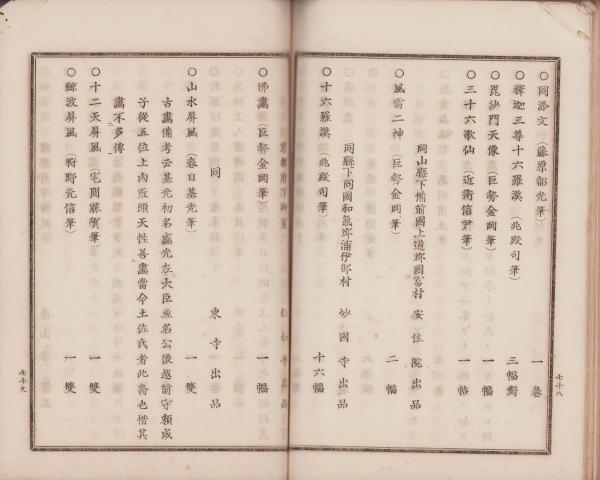 ○同添文（藤原韶光筆）　一卷
○釋迦三尊十六羅漢（兆殿司筆）　三幅對
○毘沙門天像（巨勢金岡筆）　一幅
○三十六歌仙（近衛信尹筆）　一帖
岡山縣下備前國上道郡國富村　安住院出品
○風雷二神（巨勢金岡筆）　二幅
同縣下同國和氣郡浦伊部村　妙國寺出品
○十六羅漢（兆殿司筆）　十六幅
七十八
○佛畵（巨勢金岡筆）　一幅
同　東寺出品
○山水屏風（春日基光筆）　一雙
古畵備考云基光初名盛光左大臣魚名公後越前守賴成
子從五位上內匠頭天性善畵當今土佐氏者此裔也惜其
畵不多傳
○十二天屏風（宅間勝賀筆）　一雙
○鯨波屏風（狩野元信筆）　一雙
七十九